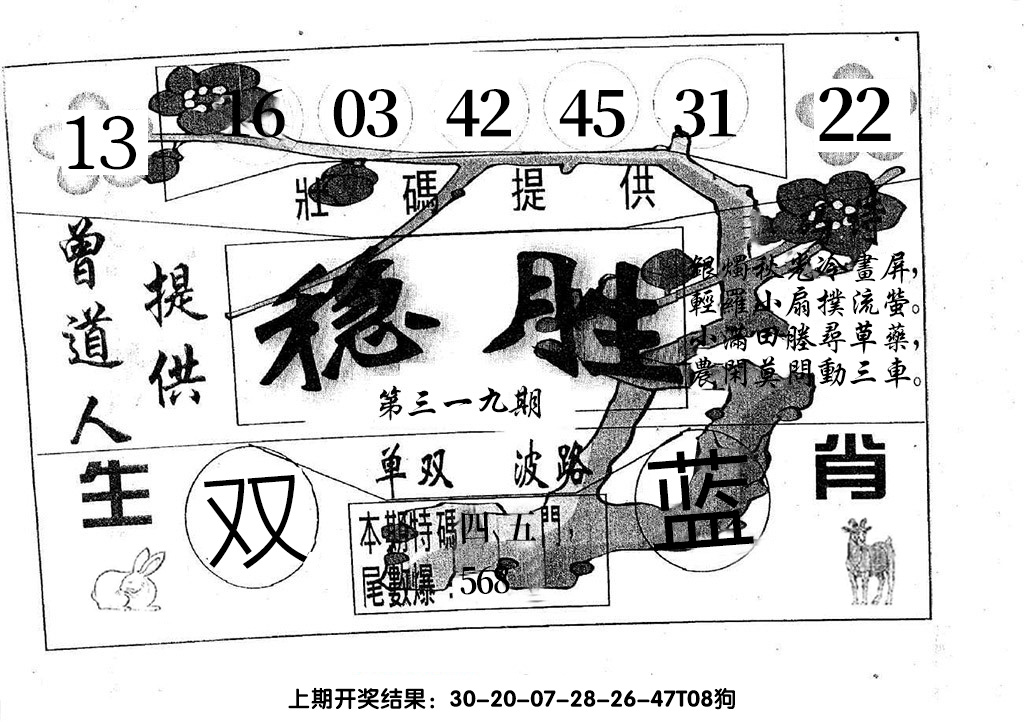 13 16 03 42 45 31 22
壯 碼 提 供
曾道人
提供
稳胜
第三一九期
銀燭秋光冷畫屏，
輕羅小扇撲流螢。
小滿田塍尋草藥，
農閑莫問動三車。
生 肖
单双 波路
双 蓝
本期特碼四、五門，
尾數爆：568
上期开奖结果：30-20-07-28-26-47T08狗